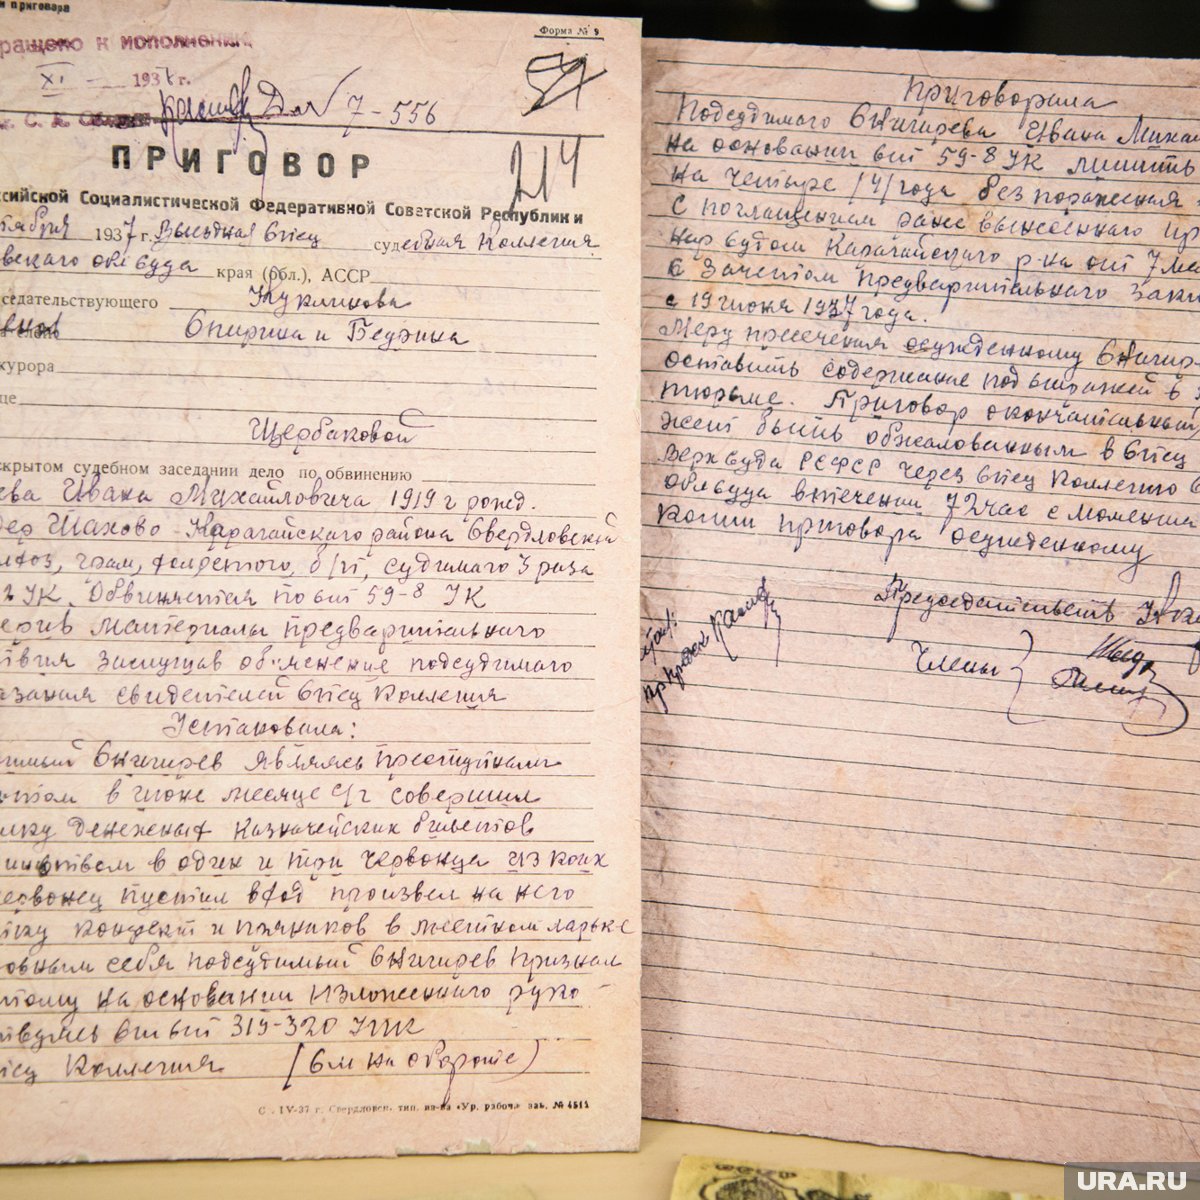 и приговора
Форма № 9
ращено к исполнению
XI 1937 г.
7-556
214
ПРИГОВОР
ссийской Социалистической Федеративной Советской Республики
тября 1937 г. Выездная спец судебная Коллегия
вского облсуда края (обл.), АССР
седательствующего Куклинова
Спирина и Бедрина
курора
це
Щербаковой
скрытом судебном заседании дело по обвинению
ева Ивана Михайловича 1919 г рожд.
дер Шахово Карагайского района Свердловской
грам, холостого, б/п, судимого 3 раза
УК. Обвиняется по ст 59-8 УК
рив материалы предварительного
ствия заслушав объяснение подсудимого
азания свидетелей спец Коллегия
Установила:
имый Снигирев являясь преступным
том в июне месяце с/г совершил
лку денежных казначейских билетов
в один и три червонца из коих
червонец пустил в ход произвел на него
пку конфект и пряников в местном ларьке
овным себя подсудимый Снигирев признал
тому на основании изложенного руко-
твуясь ст ст 319-320 УПК
пец Коллегия (см на обороте)
IV-37 г. Свердловск, тип. из-ва «Ур. рабоч.» зак. № 4511
Приговорила
Подсудимого Снигирева Ивана Михай
на основании ст 59-8 УК лишить
на четыре /4/ года без поражения
с поглащением ранее вынесенного пр
нарсудом Карагайского р-на от 7 ма
с зачетом предварительного закл
с 19 июня 1937 года.
Меру пресечения осужденному Снигир
оставить содержание под стражей в
тюрьме. Приговор окончательный,
жет быть обжалованным в спец
Верхсуда РСФСР через спец Коллегию С
облсуда втечении 72 час с момента
копии приговора осужденному
Председательств
Члены
URA.RU